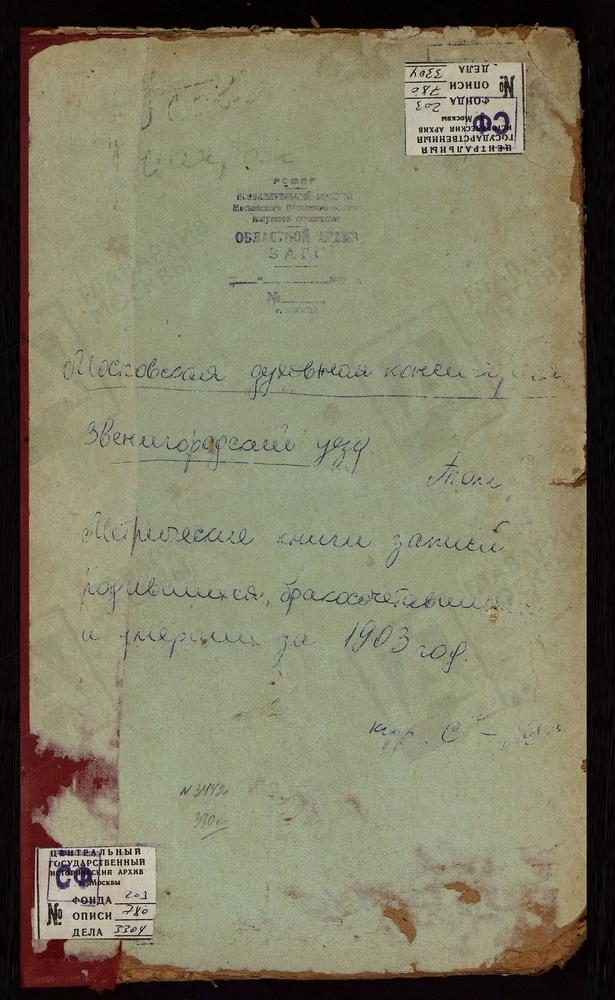 ЦЕНТРАЛЬНЫЙ
ГОСУДАРСТВЕННЫЙ
ИСТОРИЧЕСКИЙ АРХИВ
г. Москвы
СФ
№ ФОНДА 203
ОПИСИ 780
ДЕЛА 3304
РСФСР
ОБЛАСТНОЙ АРХИВ
ЗАГС
№
г. Москва
Московская духовная консистория
Звенигородский уезд
Том
Метрические книги записей
родившихся, бракосочетавшихся
и умерших за 1903 год.
N 3442
ЦЕНТРАЛЬНЫЙ
ГОСУДАРСТВЕННЫЙ
ИСТОРИЧЕСКИЙ АРХИВ
г. Москвы
СФ
ФОНДА 203
№ ОПИСИ 780
ДЕЛА 3304